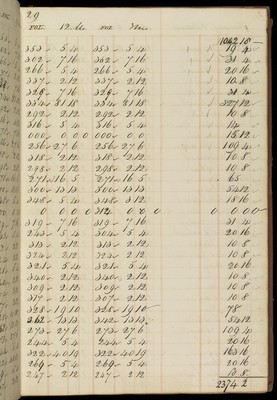 29
1042 18
353 5 4 353 5 4 19 4
302 7 16 302 7 16 31 4
266 5 4 266 5 4 20 16
337 2 12 337 2 12 10 8
328 7 16 328 7 16 31 4
292 2 12 292 2 12 10 8
316 5 4 316 5 4
000 0 0 0 000 0 0
256 27 6 256 27 6 109 4
318 2 12 318 2 12 10 8
298 2 12 298 2 12 10 8
271 16 5 271 16 5 65
300 13 13 300 13 13 54 12
348 5 4 348 3 12
319 7 16 319 7 16 31 4
5 4 304 5 4 20 16
313 2 12 313 2 12 10 8
324 2 12 324 2 12 10 8
321 5 4 321 5 4 20 16
340 2 12 340 2 12 10 8
309 2 12 309 2 12 10 8
317 2 12 307 2 12 10 8
328 19 10 328 19 10 78
262 13 13 342 13 13 54 12
273 27 6 273 27 6 109 4
244 5 4 244 5 4 20 16
322 40 19 322 40 19 163 16
269 5 4 269 5 4 20 16
247 2 12 247 2 12 10 8
2374 2